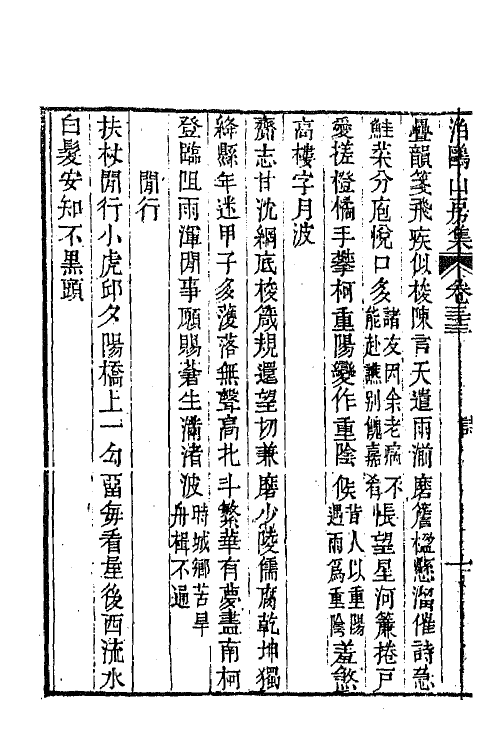 泊鷗山房集 卷三十三 詩
疊韻箋飛疾似梭陳言天遣雨湔磨簷楹懸溜催詩急
鮭菜分庖悅口多諸友因余老病不能赴讌別餽嘉肴悵望星河簾捲戶
愛搓橙橘手攀柯重陽變作重陰候昔人以重陽遇雨爲重陰羞憗
高樓字月波
齋志甘沈綱底梭箴規還望切兼磨少陵儒腐乾坤獨
絳縣年迷甲子多濩落無聲高北斗繁華有夢盡南柯
登臨阻雨渾閒事願賜蒼生滿渚波時城鄉苦旱舟楫不通
閒行
扶杖閒行小虎邱夕陽橋上一勾畱每看星後西流水
白髮安知不黑頭